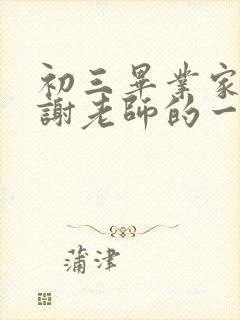 初三畢業家
謝老師的一
蒲津